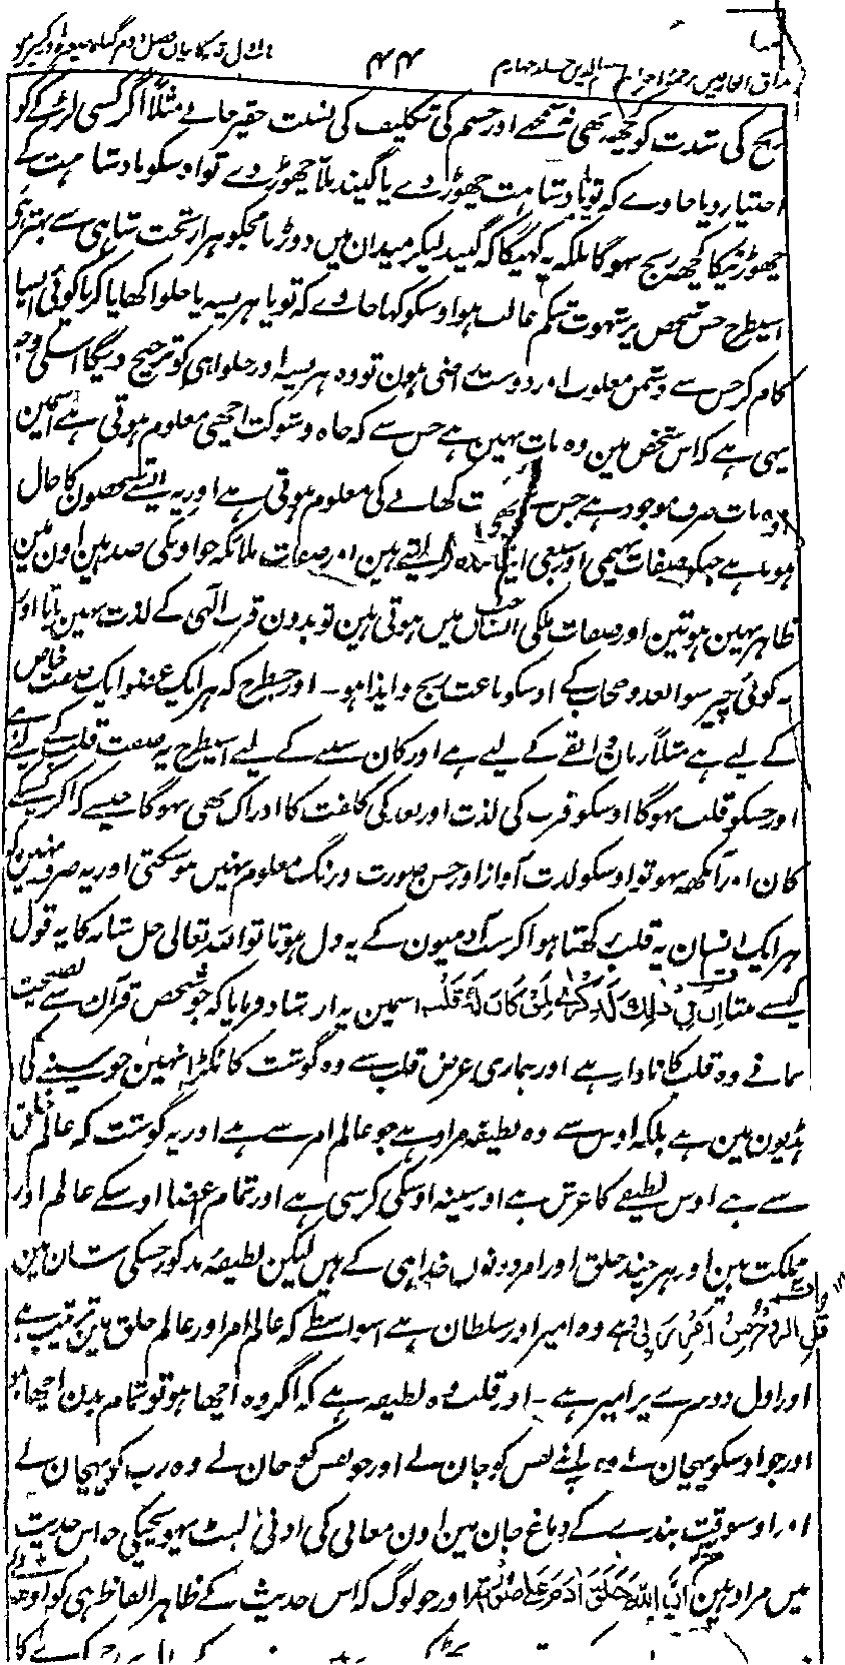 مذاق العارفین ترجمہ احیاء علوم الدین جلد چہارم ۴۴ باب اول توبہ کا بیان فصل دوم گناہ صغیرہ اور کبیرہ
رنج کی شدت کو کچھ بھی نہ سمجھے اور جسم کی تکلیف کی نسبت حقیر جانے مثلاً اگر کسی لڑکے کو
اختیار دیا جاوے کہ تو یا بادشاہت چھوڑ دے یا گیند بلا چھوڑ دے تو اوسکو بادشاہت کے
چھوڑنیکا کچھ رنج نہوگا بلکہ یہ کہیگا کہ گیند لیکر میدان میں دوڑنا مجکو ہزار تخت شاہی سے بہتر ہی
اسیطرح جس شخص پر شہوت شکم غالب ہو اوسکو کہا جاوے کہ تو یا ہریسہ یا حلوا کھایا کر یا کوئی ایسا
کام کر جس سے دشمن مغلوب اور دوست راضی ہون تو وہ ہریسہ اور حلوا ہی کو ترجیح دیگا اسکی وجہ
یہی ہے کہ اس شخص مین وہ بات نہین ہے جس سے کہ جاہ و شوکت اچھی معلوم ہوتی ہے اسمین
وہ بات صرف موجود ہے جس سے کھانے کی معلوم ہوتی ہے اور یہ ایسے شخصون کا حال
ہوتا ہے جنکو صفات بہیمی اور سبعی اپنا بندہ کر لیتے ہین اور صفات ملائکہ جو اونکی ضد ہین اون مین
ظاہر نہین ہوتین اور صفات ملکی جب انسان میں ہوتی ہین تو بدون قرب الٰہی کے لذت نہین پاتا اور
نہ کوئی چیز سوا بعد و حجاب کے اوسکو باعث رنج و ایذا ہو۔ اور جسطرح کہ ہر ایک عضو ایک صفت خاص
کے لیے ہے مثلاً زبان ذائقے کے لیے ہے اور کان سننے کے لیے اسیطرح یہ صفت قلب کے لیے ہے
اور جسکو قلب نہوگا اوسکو قرب کی لذت اور بعد کی کلفت کا ادراک بھی نہوگا جیسے کہ اگر کسیکے
کان اور آنکھ نہو تو اوسکو لذت آواز اور حسن صورت و رنگ معلوم نہیں ہو سکتی اور یہ ضرور نہین کہ
ہر ایک انسان یہ قلب رکھتا ہو اگر سب آدمیون کے یہ دل ہوتا تو اللہ تعالی جل شانہ کا یہ قول
کیسے بنتا اِنَّ فِیْ ذٰلِكَ لَذِكْرٰی لِمَنْ كَانَ لَهٗ قَلْبٌ اسمین یہ ارشاد فرمایا کہ جو شخص قرآن سے نصیحت
نمانے وہ قلب کا نادار ہے اور ہماری غرض قلب سے وہ گوشت کا ٹکڑا نہین جو سینے کی
ہڈیون مین ہے بلکہ اوس سے وہ لطیفہ مراد ہے جو عالم امر سے ہے اور یہ گوشت کہ عالم خلق
سے ہے اوس لطیفے کا عرش ہے اور سینہ اوسکی کرسی ہے اور تمام اعضا اوسکے عالم اور
مملکت ہین اور ہر چند خلق اور امر دونوں خدا ہی کے ہیں لیکن لطیفہ مذکور جسکی شان مین
قُلِ الرُّوْحُ مِنْ اَمْرِ رَبِّیْ ہے وہ امیر اور سلطان ہے اسواسطے کہ عالم امر اور عالم خلق مین ترتیب ہے
اور اول دوسرے پر امیر ہے۔ اور قلب وہ لطیفہ ہے کہ اگر وہ اچھا ہو تو تمام بدن اچھا ہو
اور جو اوسکو پہچان لے وہ اپنے نفس کو جان لے اور جو نفس کو جان لے وہ رب کو پہچان لے
اور اوسوقت بندے کے دماغ جان مین اون معانی کی ادنیٰ لپٹ پہونچیگی جو اس حدیث
میں مراد ہین اِنَّ اللّٰهَ خَلَقَ اٰدَمَ عَلٰی صُوْرَتِهٖ اور جو لوگ کہ اس حدیث کے ظاہر الفاظ ہی کو